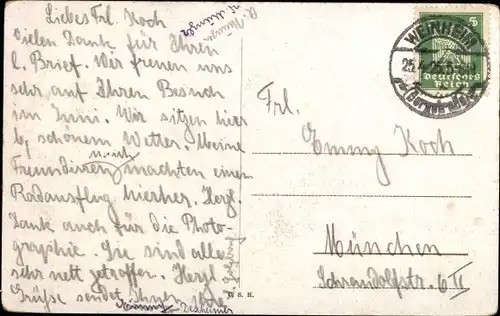 Liebes Frl. Koch
Vielen Dank für Ihren
l. Brief. Wir freuen uns
sehr auf Ihren Besuch
im Juni. Wir sitzen hier
bei schönem Wetter. Meine
Freundinnen u. ich machten einen
Radausflug hierher. Herzl.
Dank auch für die Photo-
graphie. Sie sind alle
sehr nett getroffen. Herzl.
Grüße sendet Ihnen Ihre
Emmy
WEINHEIM
(Bergstraße)
5
Deutsches
Reich
Frl.
Emmy Koch
München
Schraudolfstr. 6 II